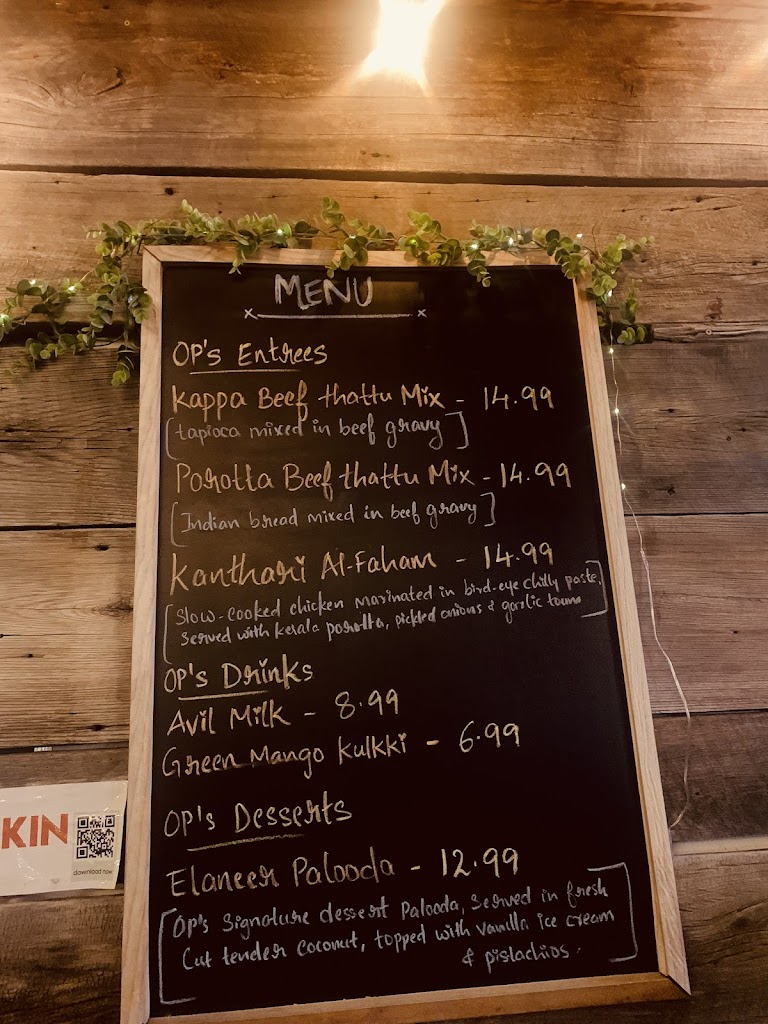 MENU
OP's Entrees
Kappa Beef thattu Mix - 14.99
[tapioca mixed in beef gravy]
Porotta Beef thattu Mix - 14.99
[Indian bread mixed in beef gravy]
Kanthari Al-Faham - 14.99
[Slow-cooked chicken marinated in bird-eye chilly paste,
served with kerala porotta, pickled onions & garlic toum]
OP's Drinks
Avil Milk - 8.99
Green Mango Kulkki - 6.99
OP's Desserts
Elaneer Palooda - 12.99
[OP's Signature dessert Palooda, served in fresh
Cut tender coconut, topped with vanilla ice cream
& pistachios.]
KIN
download now